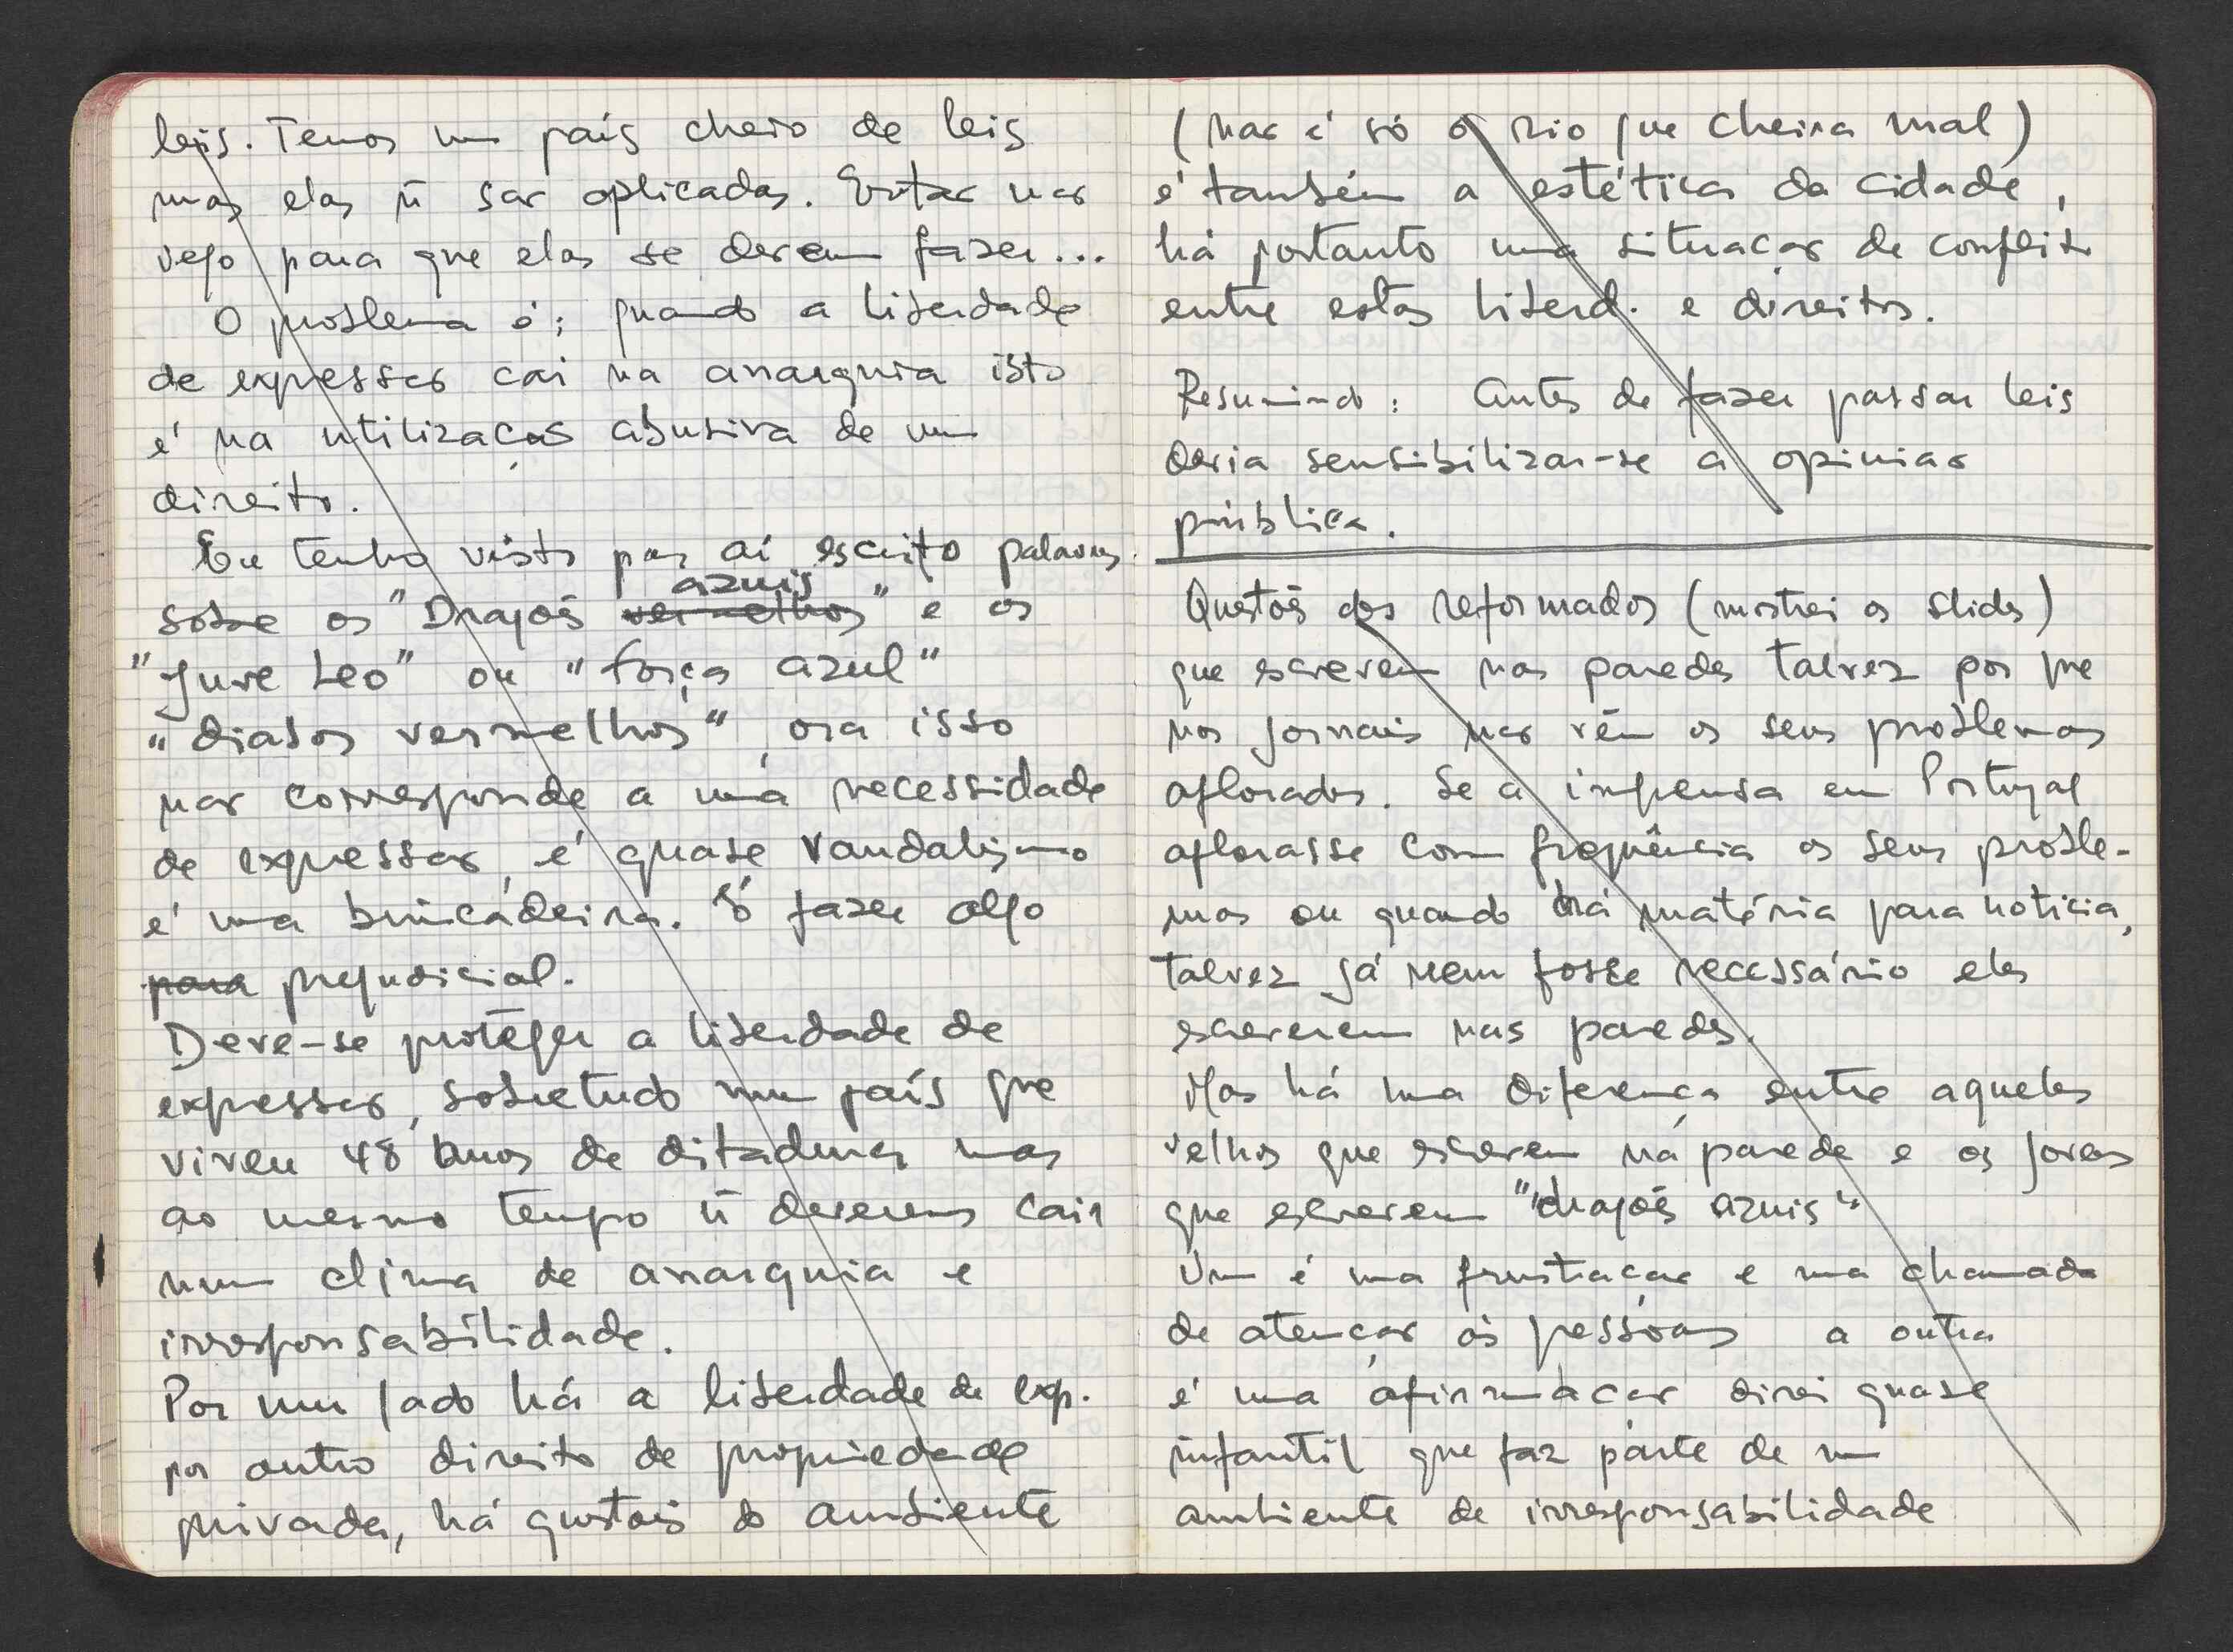 leis. Temos um país cheio de leis
mas elas ñ são aplicadas. Então não
vejo para que elas se devem fazer...
O problema é: quando a liberdade
de expressão cai na anarquia isto
é na utilização abusiva de um
direito.
Eu tenho visto por aí escrito palavras
azuis
sobre os "Dragões vermelhos" e os
"Juve Leo" ou "força azul"
"diabos vermelhos", ora isso
não corresponde a uma necessidade
de expressão, é quase vandalismo
é uma brincadeira. É fazer algo
para prejudicial.
Deve-se proteger a liberdade de
expressão, sobretudo num país que
viveu 48 anos de ditadura, mas
ao mesmo tempo ñ devemos cair
num clima de anarquia e
irresponsabilidade.
Por um lado há a liberdade de exp.
por outro direito de propriedade
privada, há questões do ambiente
(não é só o rio que cheira mal)
é também a estética da cidade,
há portanto uma situação de conflito
entre estas liberd. e direitos.
Resumindo: Antes de fazer passar leis
devia sensibilizar-se a opinião
pública.
Questões dos reformados (mostrei os slides)
que escrevem nas paredes talvez por que
nos jornais não vêm os seus problemas
aflorados. Se a imprensa em Portugal
aflorasse com frequência os seus proble-
mas ou quando há matéria para noticia,
talvez já nem fosse necessário eles
escreverem nas paredes.
Mas há uma diferença entre aqueles
velhos que escrevem na parede e os jovens
que escrevem "dragões azuis"
Um é uma frustração e uma chamada
de atenção às pessoas a outra
é uma afirmação direi quase
infantil que faz parte de um
ambiente de irresponsabilidade